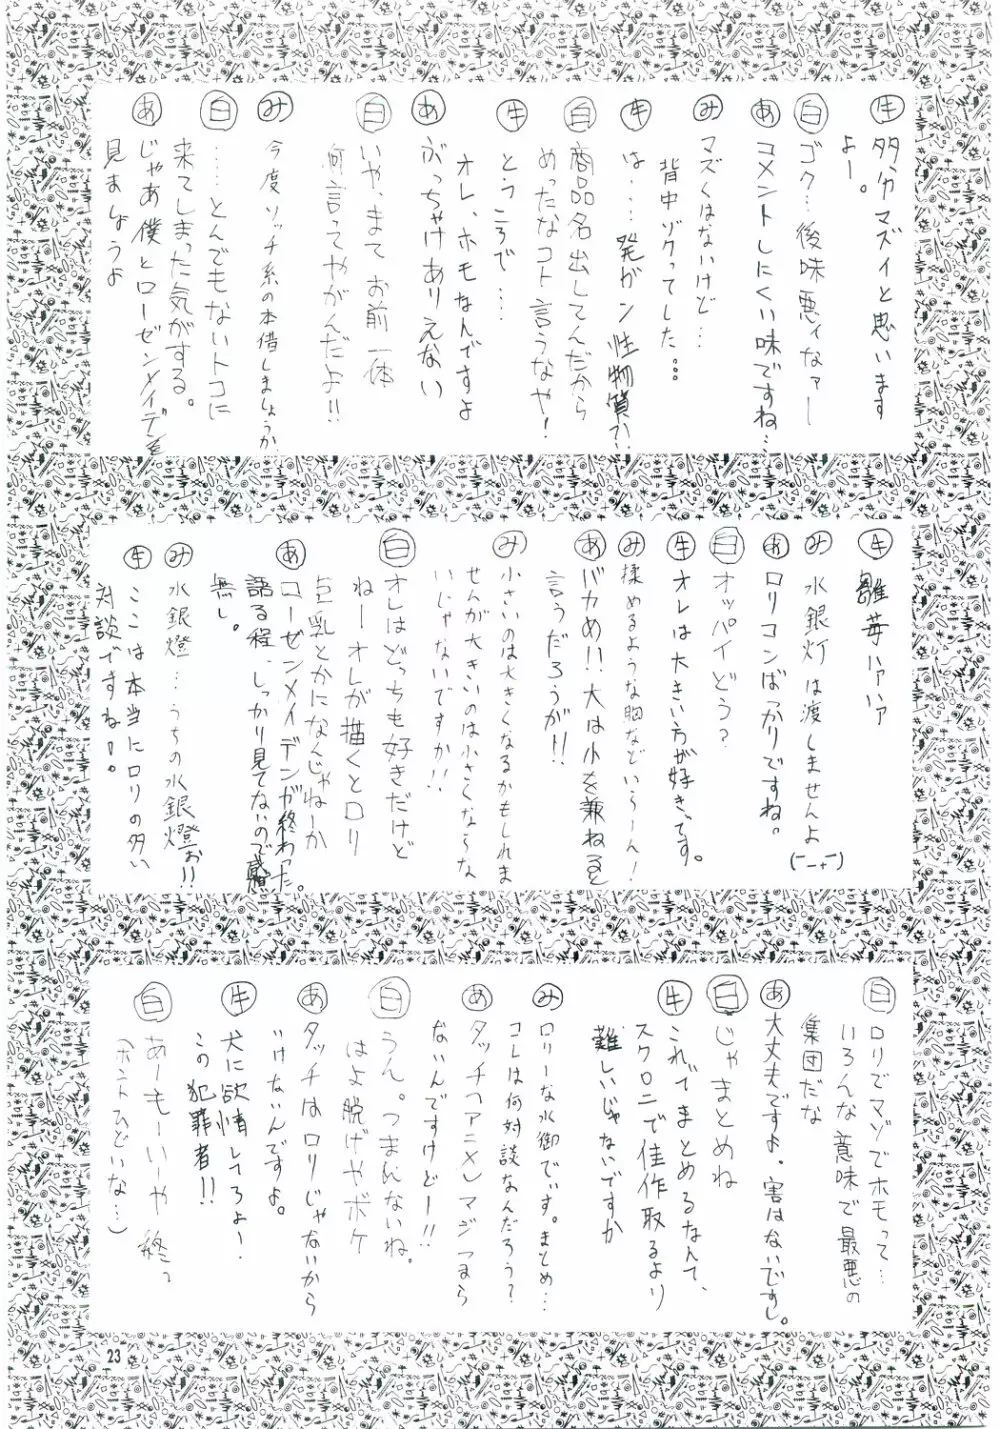 牛 多分マズイと思います
よー。
白 ゴク…後味悪ィなァー
あ コメントしにくい味ですね…
み マズくはないけど…
背中ゾクってした…
牛 は…発ガン性物質か!
白 商品名出してんだから
めったなコト言うなや!
牛 とうころで…
オレ、ホモなんですよ
あ ぶっちゃけありえない
白 いや、まて お前一体
何言ってやがんだよ!!
み 今度ソッチ系の本借しましょうか
白 ……とんでもないトコに
来てしまった気がする。
あ じゃあ僕とローゼンメイデンを
見ましょうよ
牛 雛苺ハァハァ
み 水銀灯は渡しませんよ
あ ロリコンばっかりですね。
白 オッパイどう?
牛 オレは大きい方が好きです。
み 揉めるような胸などいら〜ん!
あ バカめ!!大は小を兼ねると
言うだろうが!!
み 小さいのは大きくなるかもしれま
せんが大きいのは小さくな〜な
いじゃないですか!!
白 オレはどっちも好きだけど
ねーオレが描くとロリ
巨乳とかになんじゃねーか
あ ローゼンメイデンが終わった。
語る程、しっかり見てないので感想
無し。
み 水銀燈…うちの水銀燈ぉ!!
牛 ここは本当にロリの多い
対談ですね!。
白 ロリでマゾでホモって…
いろんな意味で最悪の
集団だな
あ 大丈夫ですよ。害はないですし。
白 じゃまとめね
牛 これでまとめるなんて、
スクロニで佳作取るより
難しいじゃないですか
み ロリーな水御でぃす。まとめ…
コレは何対談なんだろう?
あ タッチ(アニメ)マジつまら
ないんですけどー!!
白 うん。つまんないね。
はよ脱げやボケ
あ タッチはロリじゃないから
いけないんですよ。
牛 犬に欲情してろよー!
この犯罪者!!
白 あーもーいーや 終っ
(ホントひどいな…)
23